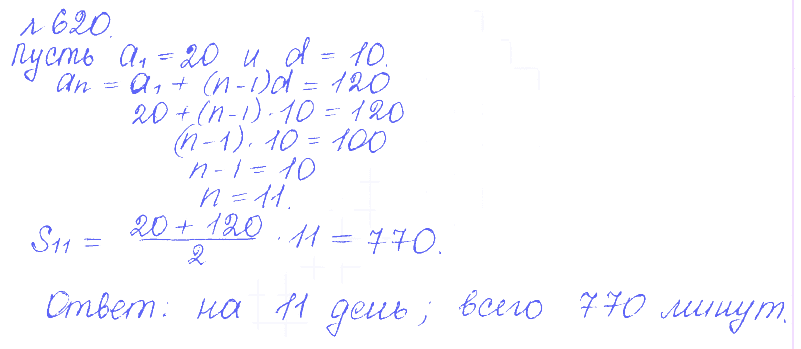 № 620.
Пусть a₁ = 20 и d = 10.
aₙ = a₁ + (n-1)d = 120
20 + (n-1) · 10 = 120
(n-1) · 10 = 100
n - 1 = 10
n = 11.
S₁₁ = (20 + 120)/2 · 11 = 770.
Ответ: на 11 день; всего 770 минут.